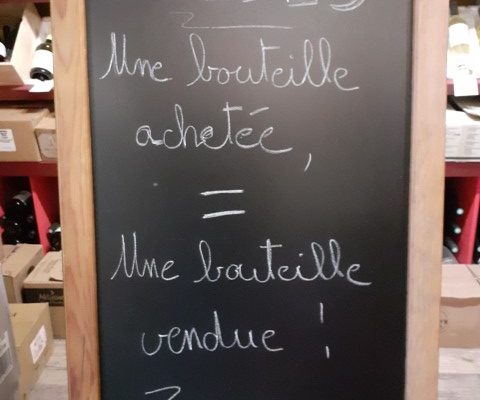 Une bouteille
achetée,
=
Une bouteille
vendue !